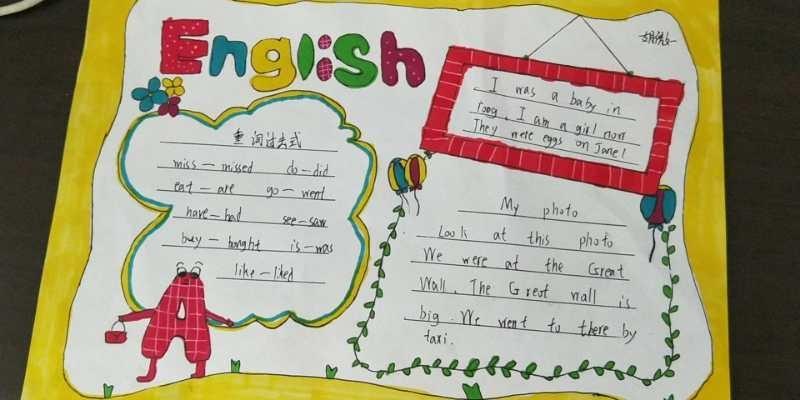 English
I was a baby in
I am a girl now
They were eggs on June 1
重词过去式
miss—missed do—did
eat—ate go—went
have—had see—saw
buy—bought is—was
like—liked
A
My photo
Look at this photo
We were at the Great
Wall. The Great wall is
big. We went to there by
taxi.